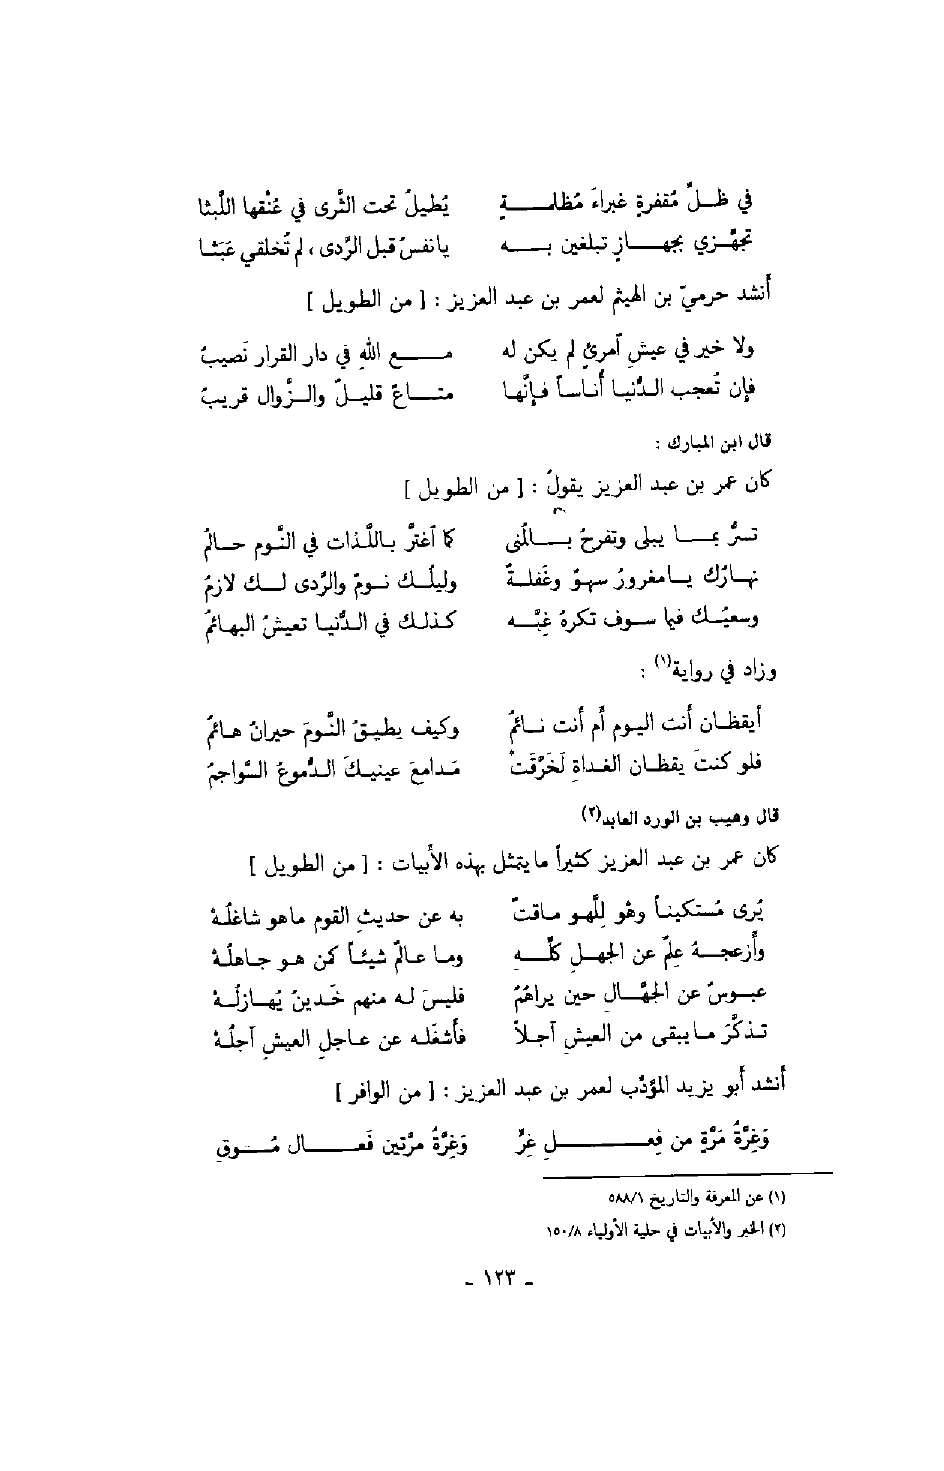 في ظلِّ مُقفرةٍ غبراءَ مُظلمةٍ يُطيلُ تحت الثَّرى في غمِّها اللَّبثا
تجهَّزي بجهازٍ تبلغين به يا نفسُ قبل الرَّدى، لم تُخلقي عَبَثا
أنشد حرميّ بن الهيثم لعمر بن عبد العزيز : [ من الطويل ]
ولا خير في عيشِ آمرئٍ لم يكن له مع اللهِ في دار القرار نَصيبُ
فإن تُعجب الدُّنيا أُناساً فإنَّها متاعٌ قليلٌ والزَّوال قريبُ
قال ابن المبارك :
كان عمر بن عبد العزيز يقولُ : [ من الطويل ]
تسرُّ بما يبلى وتفرحُ بالمُنى كما آغترَّ باللَّذات في النَّوم حالمُ
نهارُك يا مغرورُ سهوٌ وغَفلةٌ وليلُك نومٌ والرَّدى لك لازمُ
وسعيُك فيما سوف تكرهُ غِبَّه كذلك في الدُّنيا تعيشُ البهائمُ
وزاد في رواية(١) :
أيقظان أنت اليوم أم أنت نائمُ وكيف يطيقُ النَّومَ حيرانُ هائمُ
فلو كنتَ يقظان الغداةِ لَخَرَّقَتْ مَدامعَ عينيكَ الدُّموعُ السَّواجمُ
قال وهيب بن الورد العابد(٢)
كان عمر بن عبد العزيز كثيراً ما يتمثل بهذه الأبيات : [ من الطويل ]
يُرى مُستكيناً وهُو لِلَّهو ماقتٌ به عن حديثِ القوم ماهو شاغلُهْ
وأزعجهُ عِلمٌ عن الجهلِ كلِّهِ وما عالمٌ شيئاً كمن هو جاهلُهْ
عبوسٌ عن الجُهَّالِ حين يراهُمُ فليسَ له منهم خَدينٌ يُهازلُهْ
تذكَّرَ ما يبقى من العيشِ آجلاً فأشغَلَه عن عاجلِ العيشِ آجلُهْ
أنشد أبو يزيد المؤدِّب لعمر بن عبد العزيز : [ من الوافر ]
وَغِرَّةُ مَرَّةٍ من فعلِ غِرٍّ وَغِرَّةُ مرَّتين فَعالُ مُوقِ
(١) عن المعرفة والتاريخ ٥٨٨/١
(٢) الخبر والأبيات في حلية الأولياء ١٥٠/٨
- ١٢٣ -